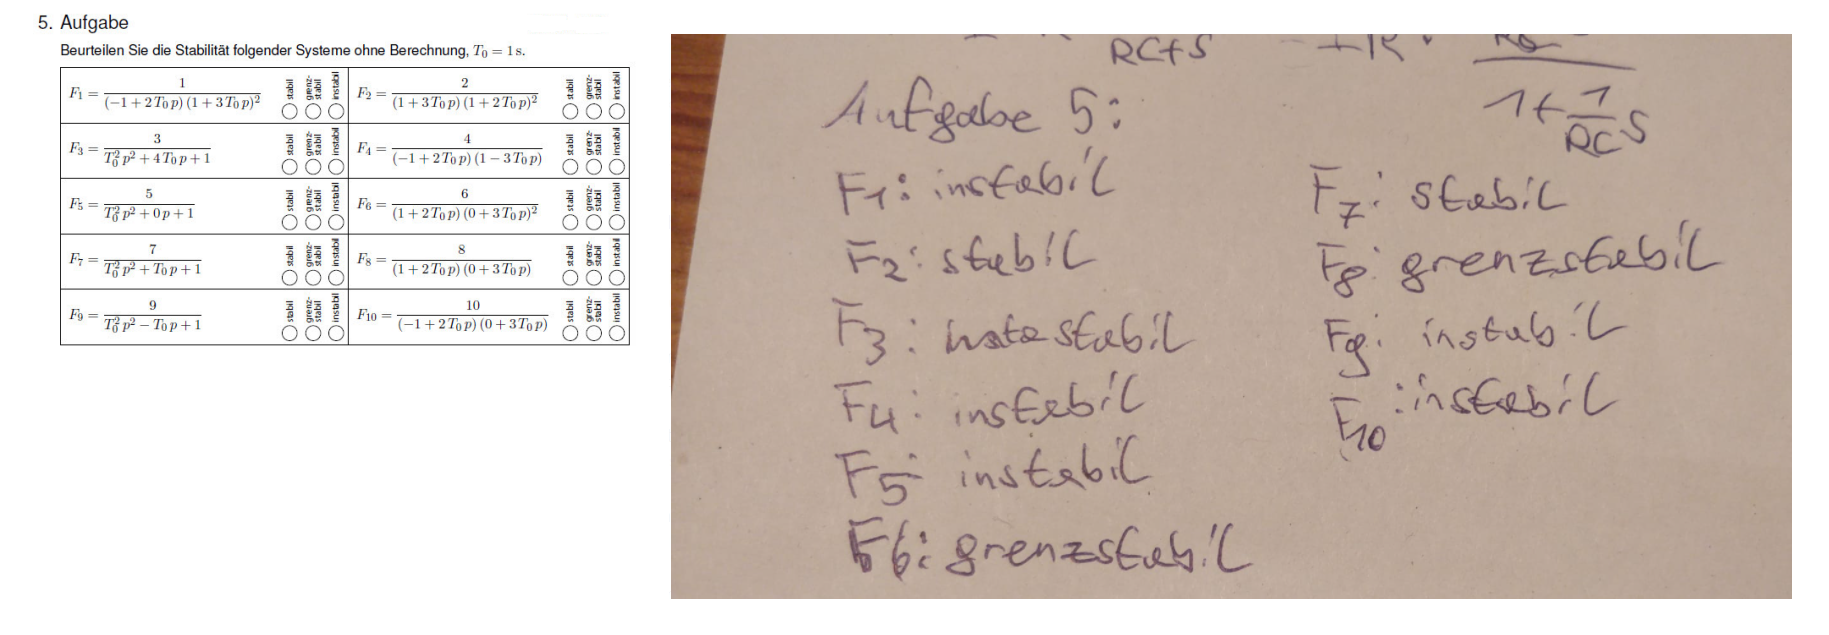 5. Aufgabe
Beurteilen Sie die Stabilität folgender Systeme ohne Berechnung, T₀ = 1 s.
F₁ = 1 / ((−1 + 2 T₀ p) (1 + 3 T₀ p)²) stabil grenz-stabil instabil F₂ = 2 / ((1 + 3 T₀ p) (1 + 2 T₀ p)²) stabil grenz-stabil instabil
F₃ = 3 / (T₀² p² + 4 T₀ p + 1) stabil grenz-stabil instabil F₄ = 4 / ((−1 + 2 T₀ p) (1 − 3 T₀ p)) stabil grenz-stabil instabil
F₅ = 5 / (T₀² p² + 0 p + 1) stabil grenz-stabil instabil F₆ = 6 / ((1 + 2 T₀ p) (0 + 3 T₀ p)²) stabil grenz-stabil instabil
F₇ = 7 / (T₀² p² + T₀ p + 1) stabil grenz-stabil instabil F₈ = 8 / ((1 + 2 T₀ p) (0 + 3 T₀ p)) stabil grenz-stabil instabil
F₉ = 9 / (T₀² p² − T₀ p + 1) stabil grenz-stabil instabil F₁₀ = 10 / ((−1 + 2 T₀ p) (0 + 3 T₀ p)) stabil grenz-stabil instabil
RC+S
1 + 1/RC S
Aufgabe 5:
F1: instabil
F2: stabil
F3: stabil
F4: instabil
F5: instabil
F6: grenzstabil
F7: stabil
F8: grenzstabil
F9: instabil
F10: instabil